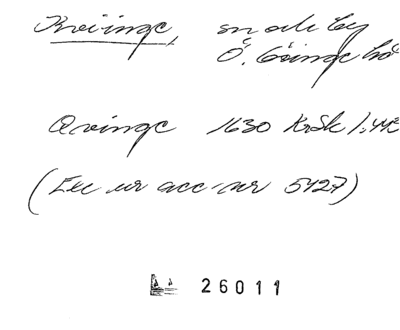 Kviinge, sn och by
Ö. Göinge hd
Qvinge 1630 KrSk 1:443
(Exc ur acc nr 5427)
26011